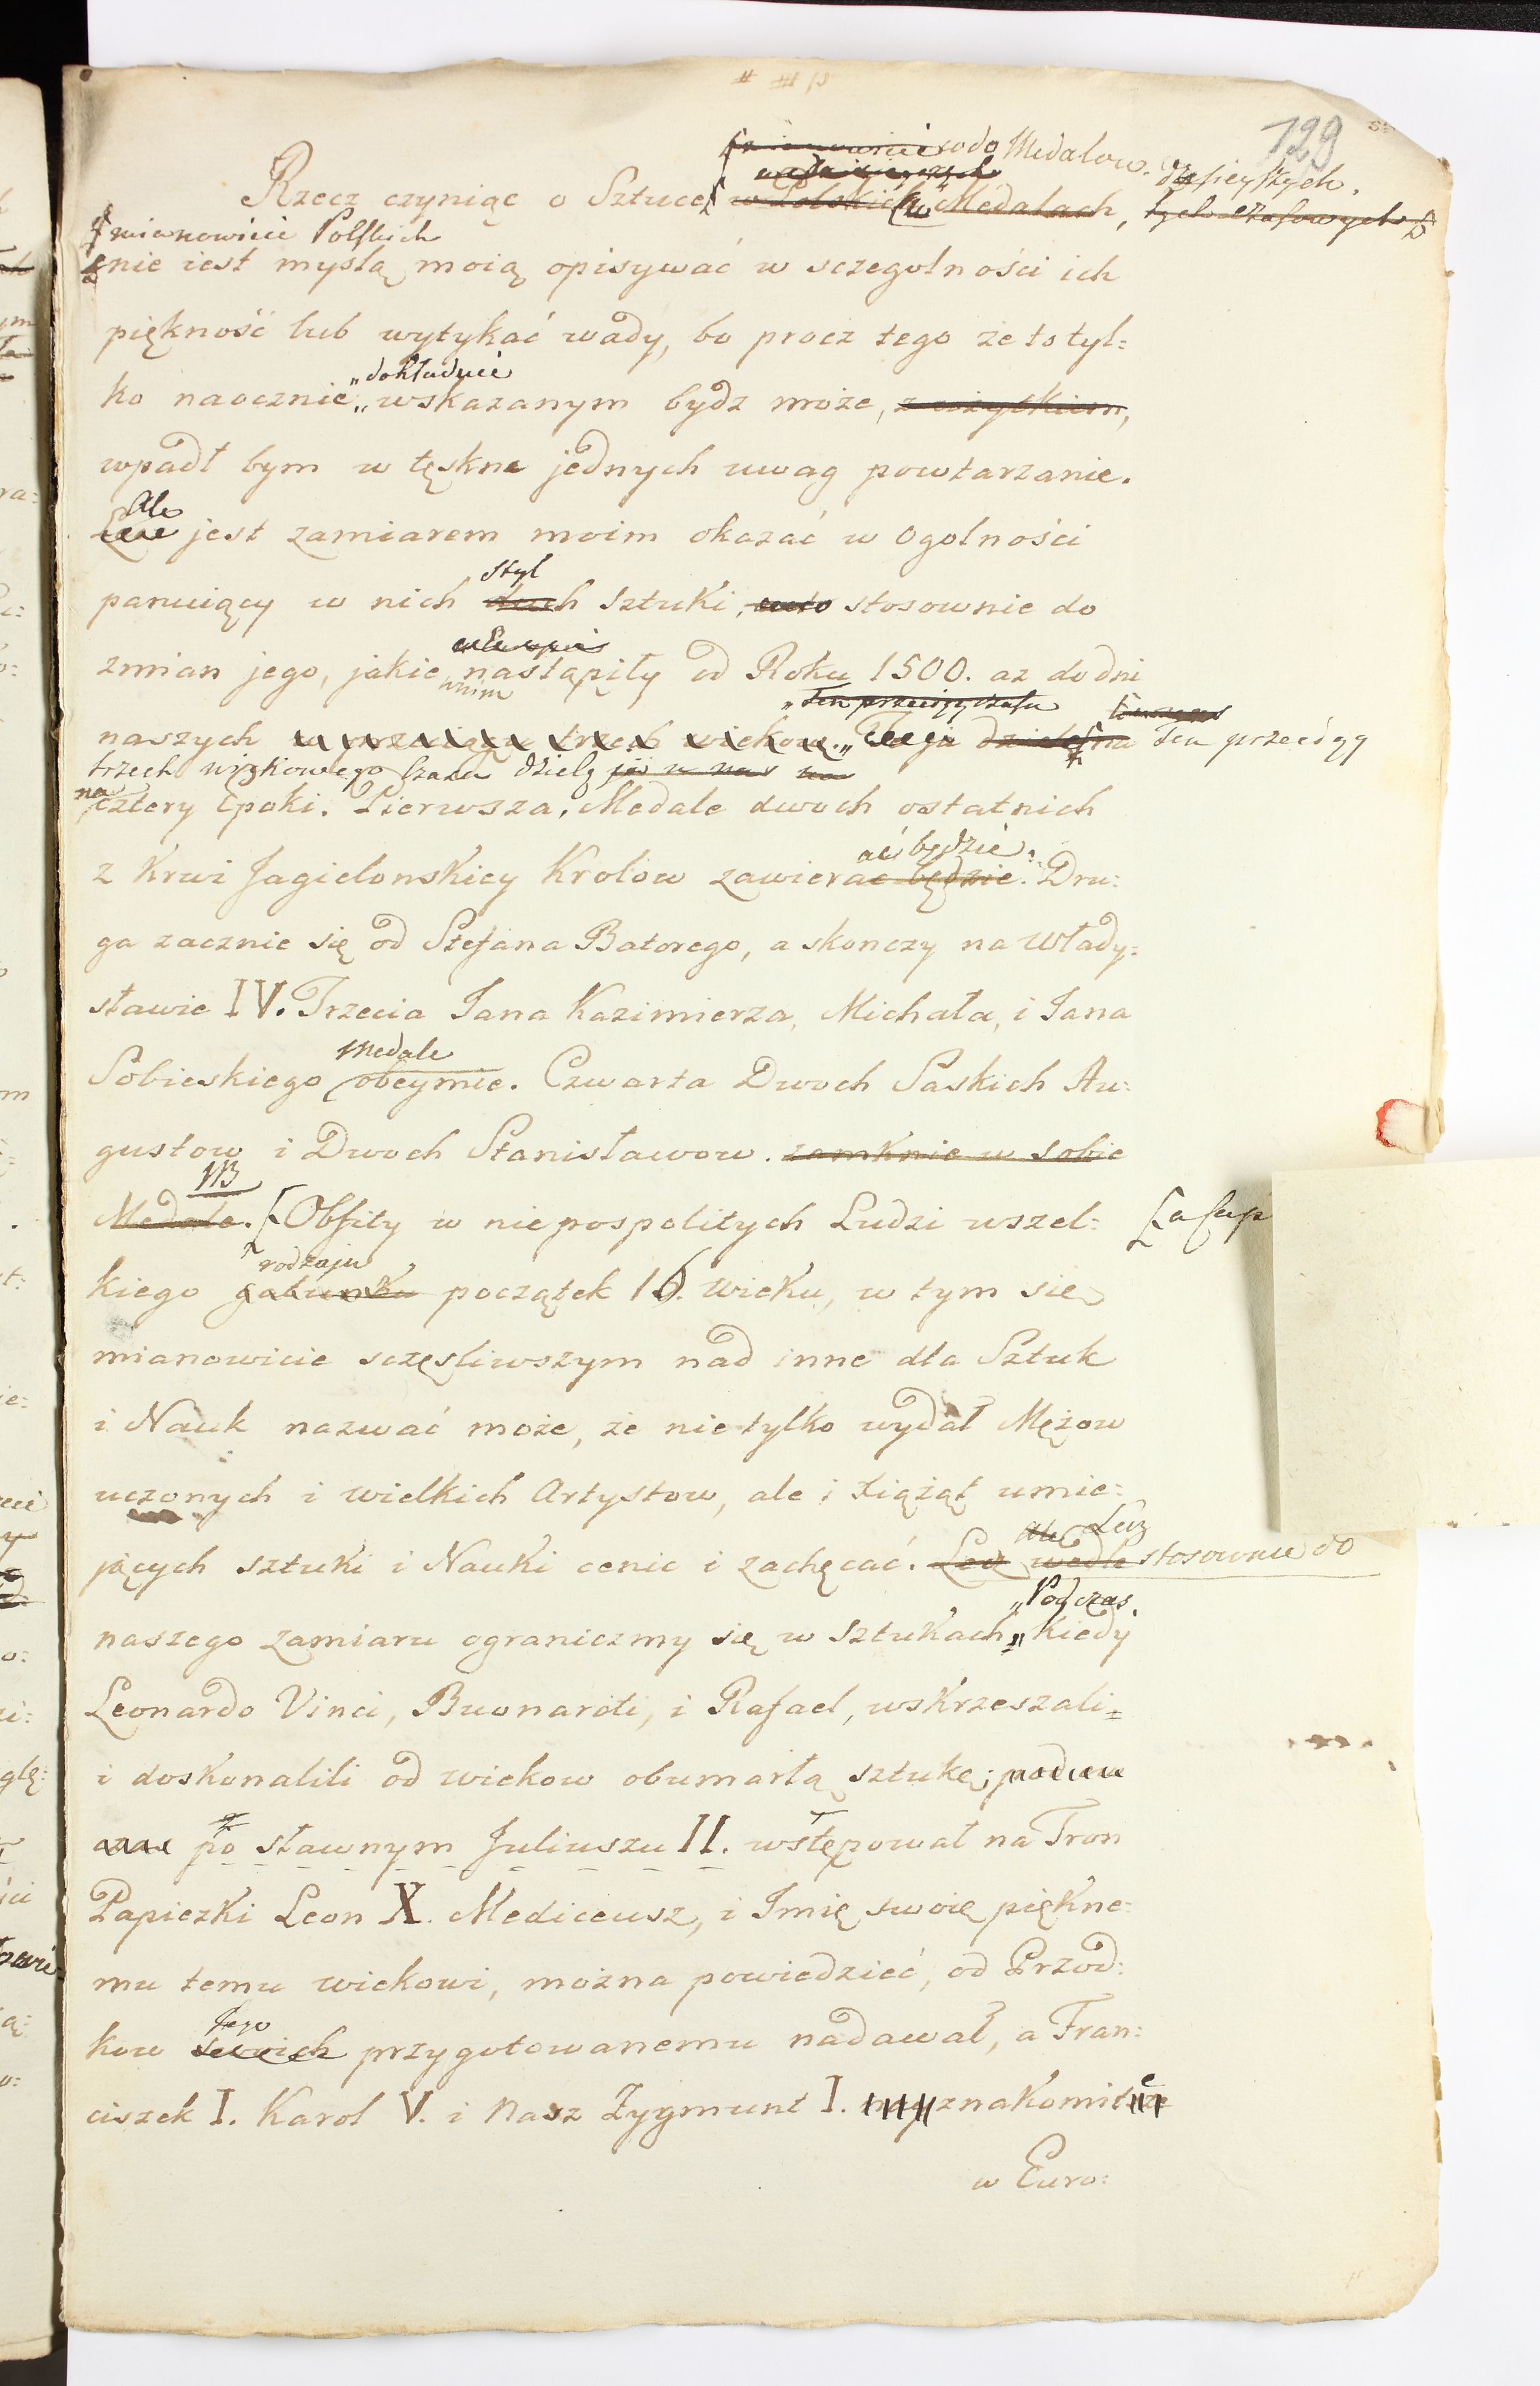 129
rodo Medalow. dzisieyszych.
Rzecz czyniąc o Sztuce w Polskich Medalach, tych czasowych
mianowicie Polskich
nie iest myslą moią opisywać w sczegolności ich
piękność lub wytykać wady, bo procz tego że to tyl:
dokładnie
ko naocznie „ wskazanym bydz może, z użytkiem,
wpadł bym w tęskne jednych uwag powtarzanie.
Ale
Lecz jest zamiarem moim okazać w Ogolności
styl
panuiący w nich duch sztuki, stosownie do
zmian jego, jakie nastąpiły od Roku 1500. az do dni
w nim
„ten przeciąg czasu
naszych w przeciągu trzech wiekow. „ ja dziele na Ten przeciąg
trzech wiekowego Czasu dzielę
na
cztery Epoki. Pierwsza, Medale dwoch ostatnich
ać będzie.
z Krwi Jagielonskiey Krolow zawierac będzie. Dru:
ga zacznie się od Stefana Batorego, a skonczy na Włady:
sławie IV. Trzecia Jana Kazimierza, Michała, i Jana
Medale
Sobieskiego obeymie. Czwarta Dwoch Saskich Au:
gustow i Dwoch Stanisławow. zamknie w sobie
NB
Medale. [Obfity w niepospolitych Ludzi wszel:
rodzaju
kiego gatunku początek 16. wieku, w tym się
mianowicie sczęsliwszym nad inne dla Sztuk
i Nauk nazwać może, że nie tylko wydał Mężow
uczonych i wielkich Artystow, ale i Xiążąt umie:
Ale Lecz
jących sztuki i Nauki cenic i zachęcać. Lecz wedle stosownie do
„Podczas
naszego zamiaru ograniczmy się w Sztukach „ Kiedy
Leonardo Vinci, Buonaroti, i Rafael, wskrzeszali
i doskonalili od wiekow obumarłą sztukę;
po sławnym Juliuszu II. wstępował na Tron
Papiezki Leon X. Mediceusz, i Imię swoię piękne:
mu temu wiekowi, można powiedzieć, od Przod:
Jego
kow swoich przygotowanemu nadawał, a Fran:
ciszek I. Karol V. i Nasz Zygmunt I. znakomite
w Euro: